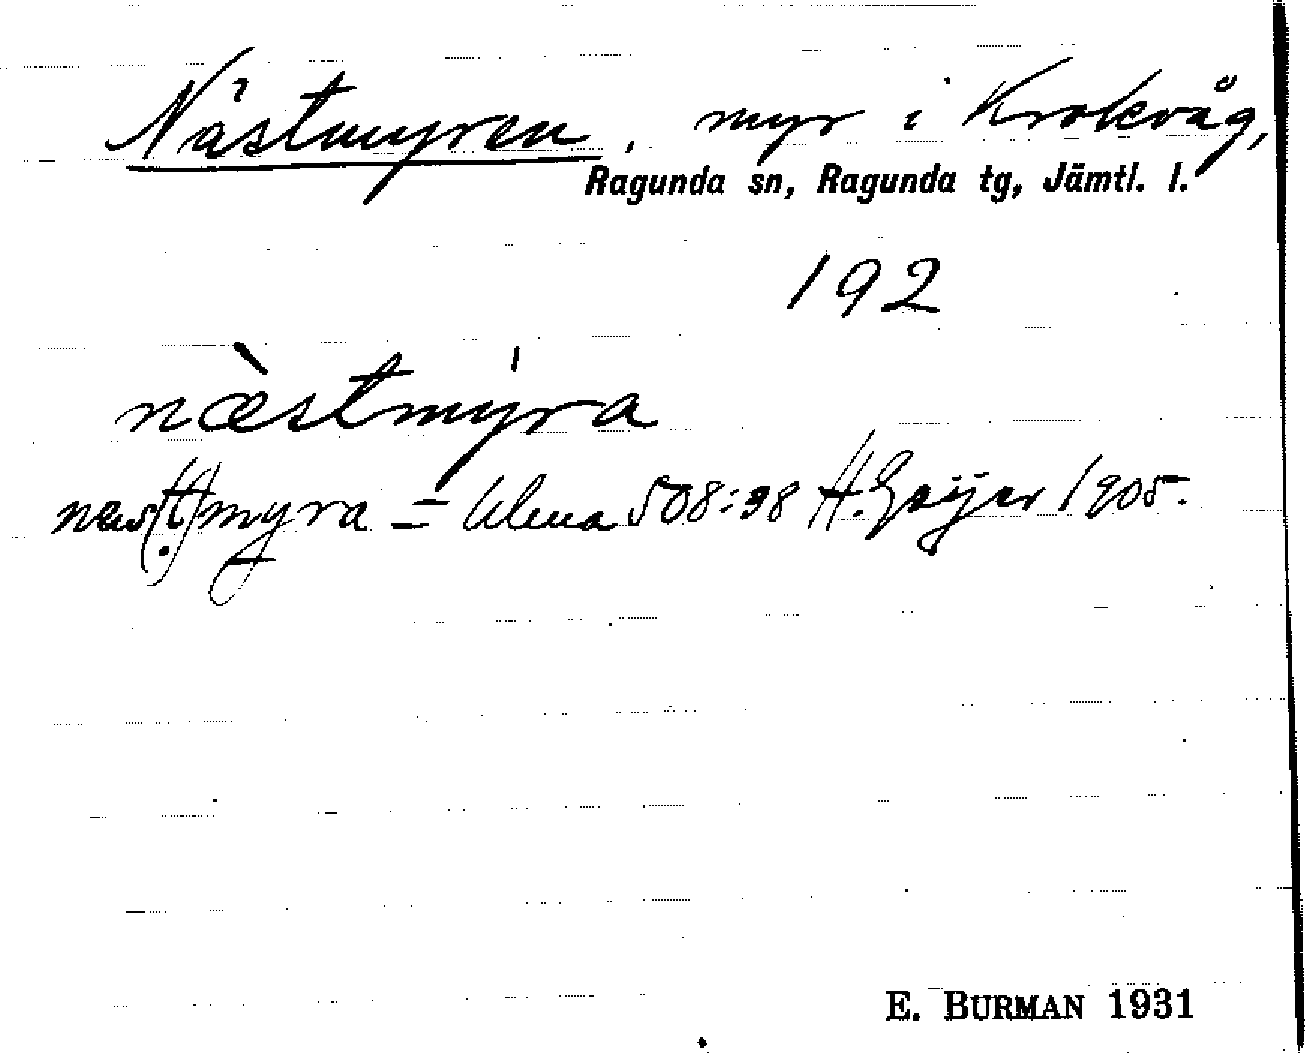 Nästmyren, myr i Krokvåg,
Ragunda sn, Ragunda tg, Jämtl. l.
192
næ̀stmýra
næs(t)myra = Ulma 508:98 H. Geijer 1905.
E. BURMAN 1931